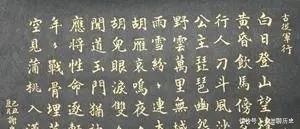 古從軍行
白日登山望
黄昏飲馬傍
行人刁斗風
公主琵琶幽怨
野雲萬里無城
雨雪紛紛連
胡雁哀鳴夜
胡兒眼淚雙
聞道玉門猶
應將性命
年戰骨埋荒
空見蒲桃入漢